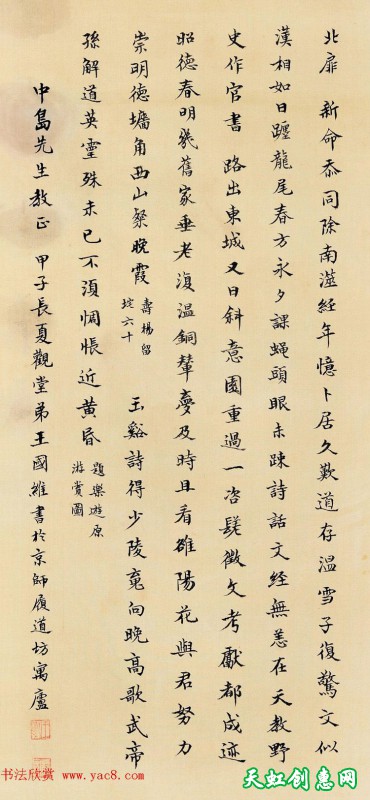 北扉新命忝同除南澨經年憶卜居久歎道存溫雪子復驚文似
漢相如日躔龍尾春方永夕課蠅頭眼未疎詩話文經無恙在天教野
史作官書 路出東城又日斜意園重過一咨嗟徵文考獻都成迹
昭德春明幾舊家垂老復溫銅輦夢及時且看雒陽花與君努力
崇明德墻角西山粲晚霞 壽楊留
垞六十
玉谿詩得少陵魂向晚高歌武帝
孫解道英靈殊未已不須惆悵近黃昏 題樂遊原
游賞圖
中島先生教正 甲子長夏觀堂弟王國維書於京師履道坊寓廬
书法欣赏 www.yac8.com
天虹创惠网